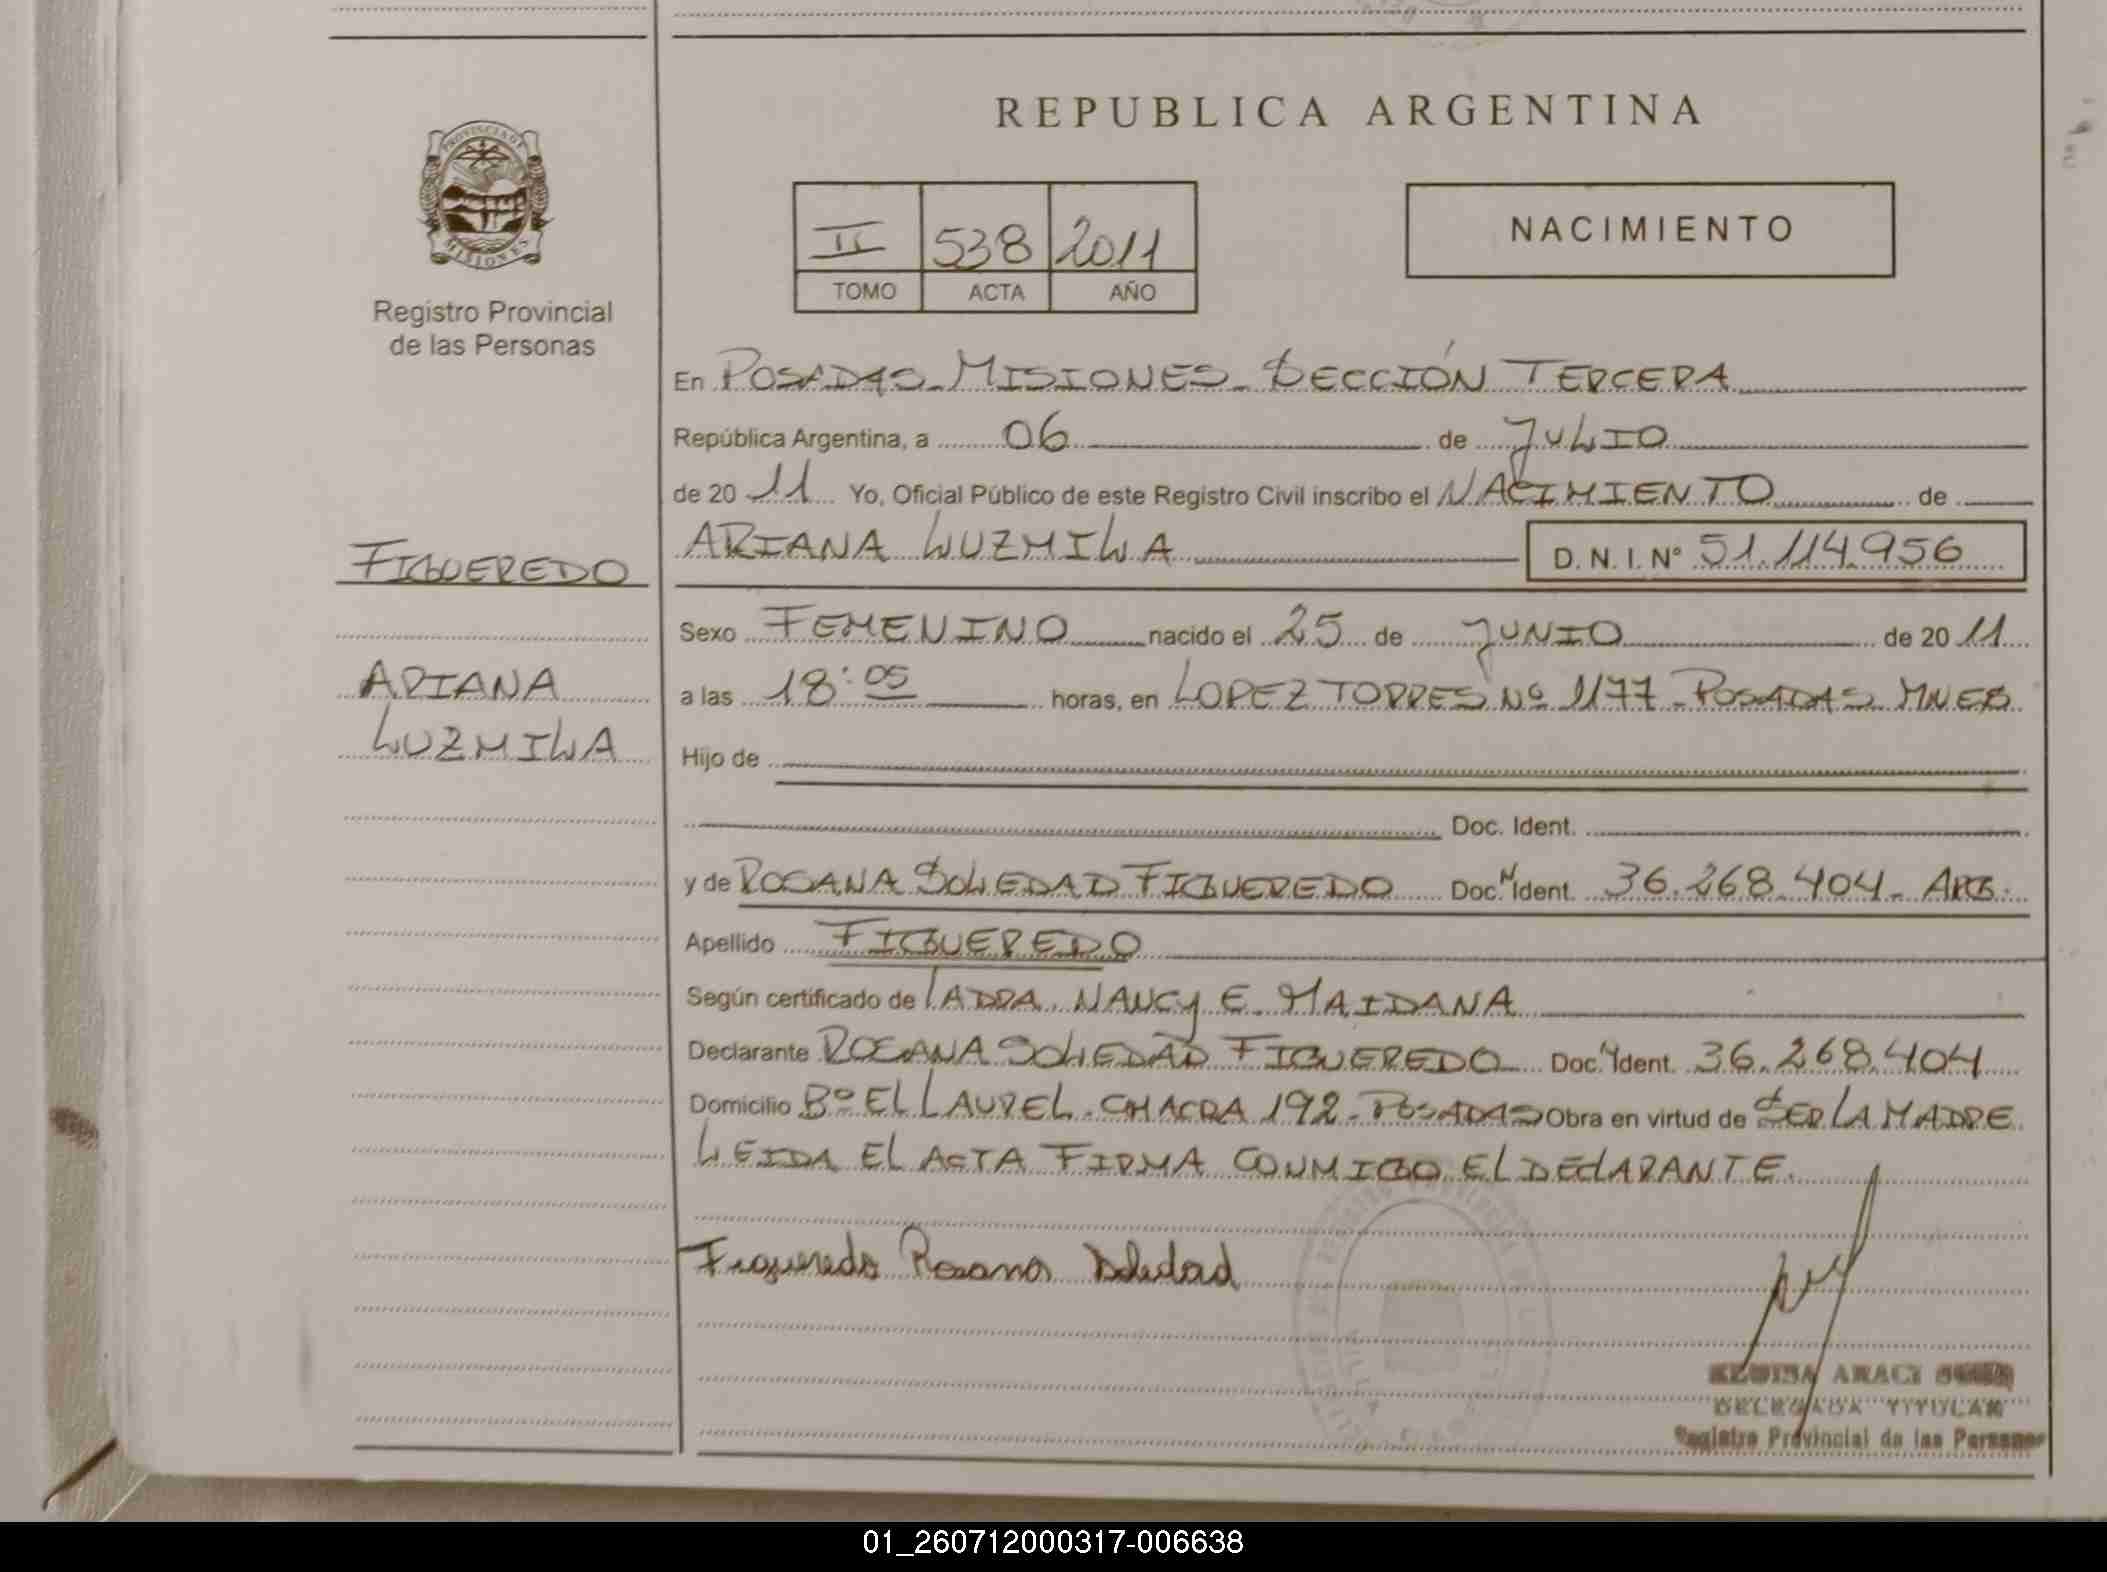 REPUBLICA ARGENTINA
PROVINCIA DE
MISIONES
Registro Provincial
de las Personas
II 538 2011
TOMO ACTA AÑO
NACIMIENTO
En POSADAS - MISIONES - SECCIÓN TERCERA
República Argentina, a 06 de JULIO
de 20 11 Yo, Oficial Público de este Registro Civil inscribo el NACIMIENTO de
ARIANA LUZMILA D. N. I. Nº 51.114.956
FIGUEREDO
ARIANA
LUZMILA
Sexo FEMENINO nacido el 25 de JUNIO de 20 11
a las 18:05 horas, en LOPEZ TORRES Nº 1177 - POSADAS MNES
Hijo de
Doc. Ident.
y de ROSANA SOLEDAD FIGUEREDO Doc. N Ident. 36.268.404 - ARG.
Apellido FIGUEREDO
Según certificado de LA DRA. NANCY E. MAIDANA
Declarante ROSANA SOLEDAD FIGUEREDO Doc. N Ident. 36.268.404
Domicilio Bº EL LAUREL - CHACRA 192 - POSADAS Obra en virtud de SER LA MADRE
LEIDA EL ACTA FIRMA CONMIGO EL DECLARANTE.
Figueredo Rosana Soledad
ARACI
DELEGADA TITULAR
Registro Provincial de las Personas
01_260712000317-006638